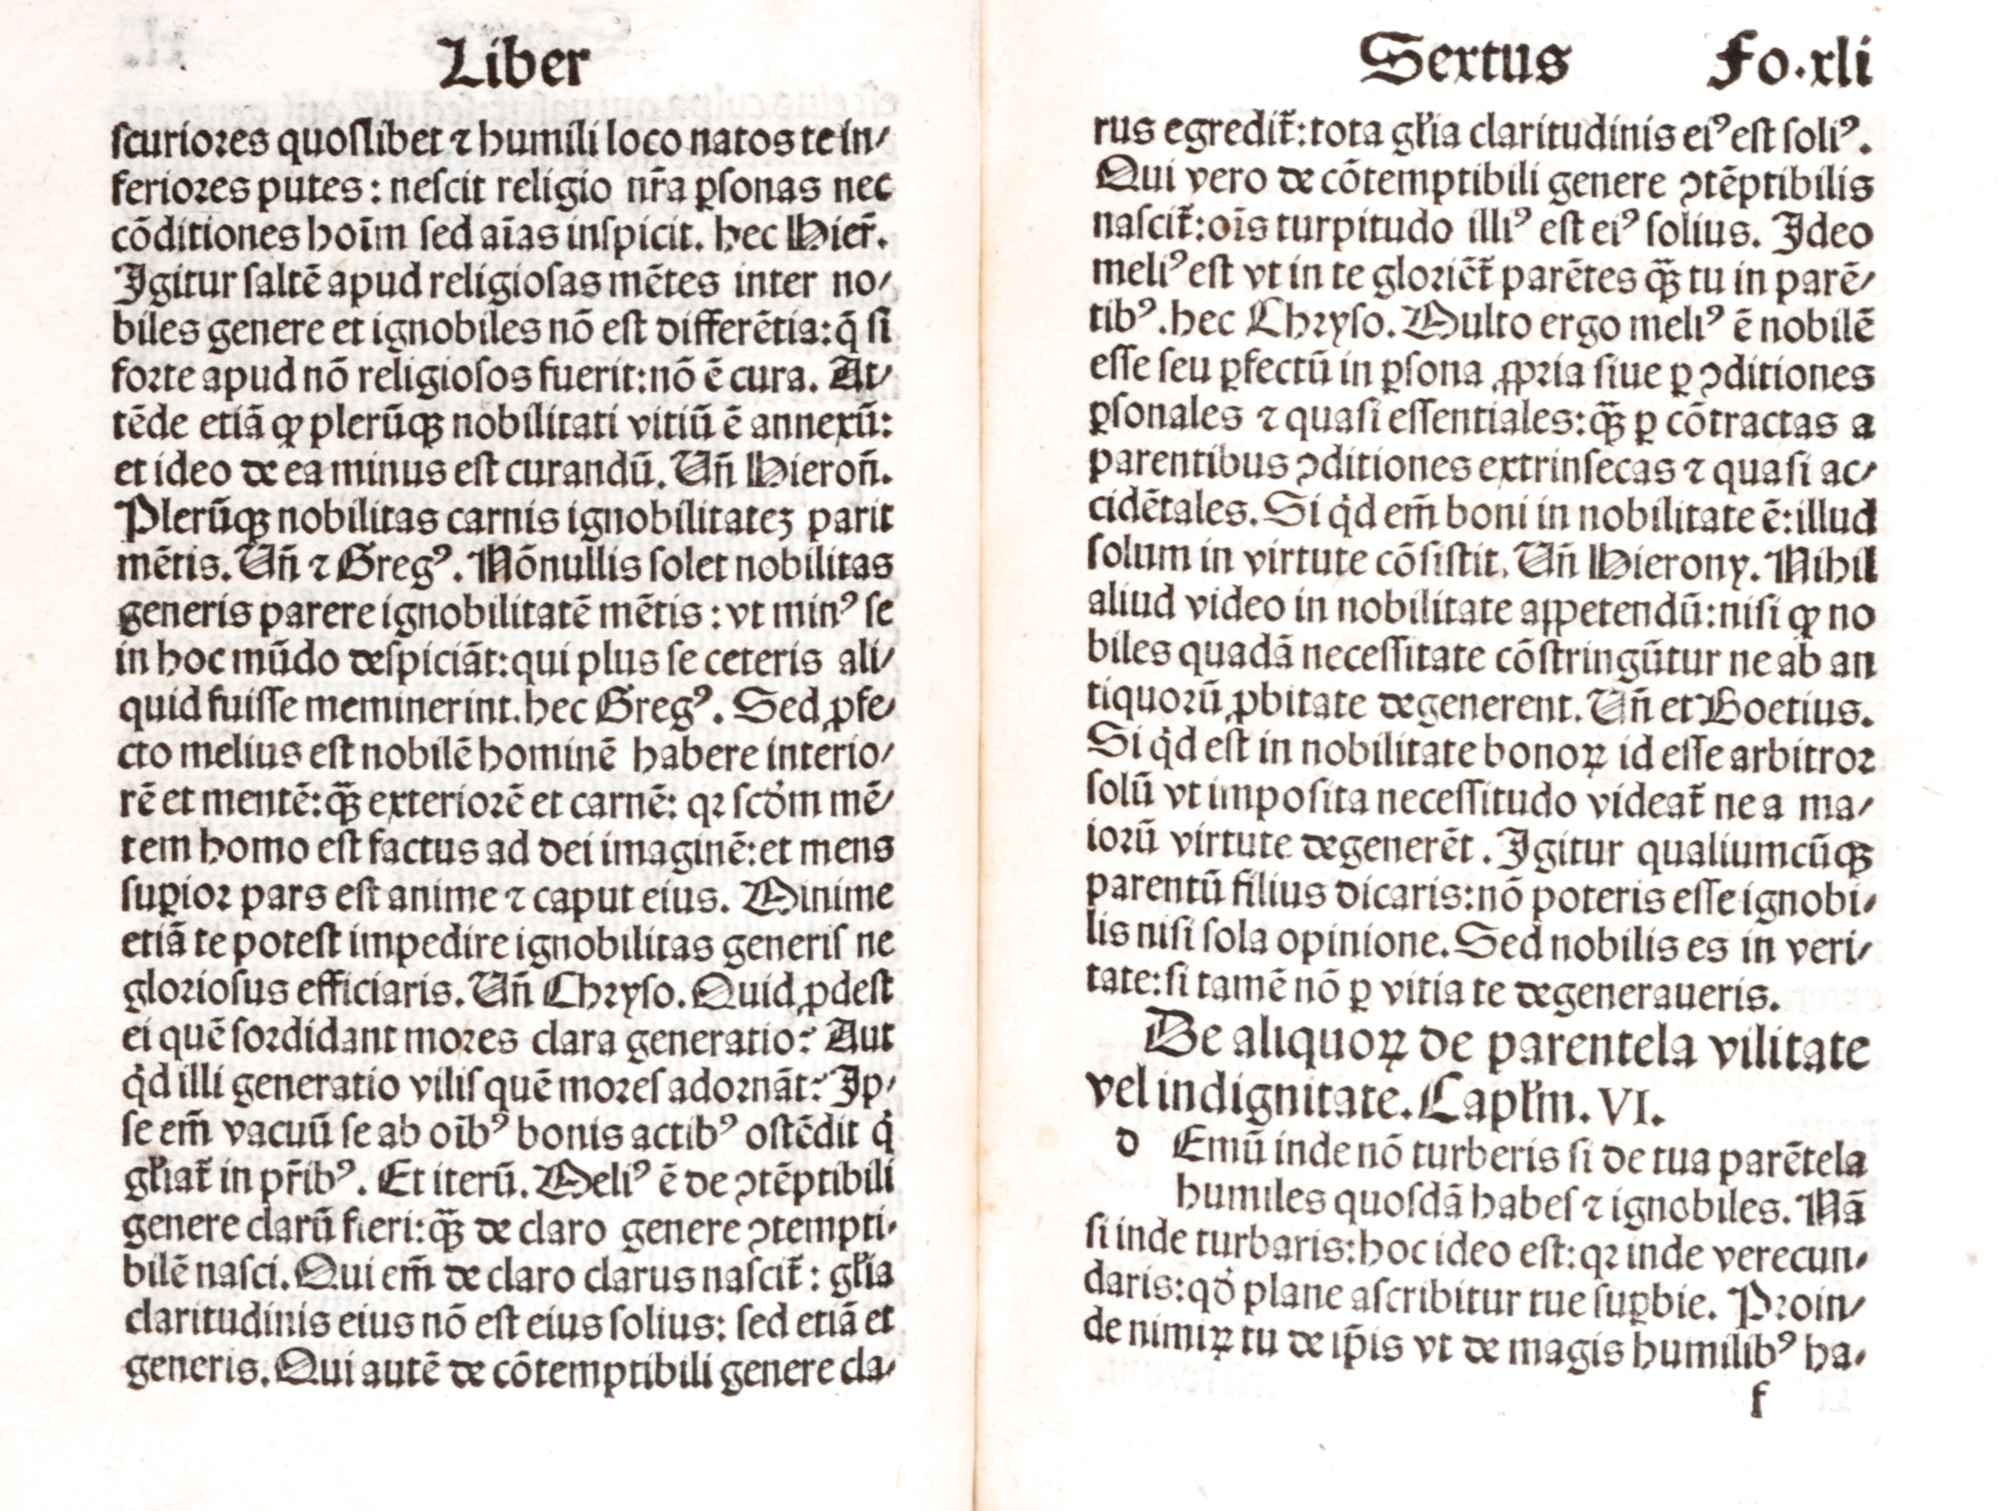 Liber
ſcuriores quoſlibet ⁊ humili loco natos te in/
feriores putes: neſcit religio nr̄a ꝑſonas nec
cōditiones hoīm ſed aīas inſpicit. hec Hier̄.
Igitur ſaltē apud religioſas mētes inter no/
biles genere et ignobiles nō eſt differētia: ꝙ̄ ſi
forte apud nō religioſos fuerit: nō ē cura. At/
tēde etiā ꝙ plerūqꝫ nobilitati vitiū ē annexū:
et ideo de ea minus eſt curandū. Uñ Hieroñ.
Plerūqꝫ nobilitas carnis ignobilitateꝫ parit
mētis. Uñ ⁊ Gregꝰ. Nōnullis ſolet nobilitas
generis parere ignobilitatē mētis: vt minꝰ ſe
in hoc mūdo deſpiciāt: qui plus ſe ceteris ali/
quid fuiſſe meminerint. hec Gregꝰ. Sed ꝓfe/
cto melius eſt nobilē hominē habere interio/
rē et mentē: qꝫ̄ exteriorē et carnē: qꝛ ſcd̓m mē/
tem homo eſt factus ad dei imaginē: et mens
ſuꝑior pars eſt anime ⁊ caput eius. Minime
etiā te poteſt impedire ignobilitas generiſ ne
glorioſus efficiaris. Uñ Chryſo. Quid ꝓdeſt
ei quē ſordidant mores clara generatio? Aut
qͥd illi generatio viliſ quē moreſ adornāt? Ip/
ſe em̄ vacuū ſe ab oībꝰ bonis actibꝰ oſtēdit qͥ
gl̓iat̄ in pr̄ibꝰ. Et iterū. Meliꝰ ē de ꝯtēptibili
genere clarū fieri: qꝫ̄ de claro genere ꝯtempti/
bilē naſci. Qui em̄ de claro clarus naſcit̄: gl̓ia
claritudinis eius nō eſt eius ſolius: ſed etiā et
generis. Qui autē de cōtemptibili genere cla/
Sextus Fo.xli
rus egredit̄: tota gl̓ia claritudinis eiꝰ eſt ſoliꝰ.
Qui vero de cōtemptibili genere ꝯtēptibilis
naſcit̄: oīs turpitudo illiꝰ eſt eiꝰ ſolius. Ideo
meliꝰ eſt vt in te gloriēt̄ parētes qꝫ̄ tu in parē/
tibꝰ. hec Chryſo. Multo ergo meliꝰ ē nobilē
eſſe ſeu ꝑfectū in ꝑſona ꝓpria ſiue ꝑ ꝯditiones
ꝑſonales ⁊ quaſi eſſentiales: qꝫ̄ ꝑ cōtractas a
parentibus ꝯditiones extrinſecas ⁊ quaſi ac/
cidētales. Si qͥd em̄ boni in nobilitate ē: illud
ſolum in virtute cōſiſtit. Uñ Hierony. Nihil
aliud video in nobilitate appetendū: niſi ꝙ no
biles quadā neceſſitate cōſtringūtur ne ab an
tiquorū ꝓbitate degenerent. Uñ et Boetius.
Si qͥd eſt in nobilitate bonoꝝ id eſſe arbitror
ſolū vt impoſita neceſſitudo videat̄ ne a ma/
iorū virtute degenerēt. Igitur qualiumcūqꝫ
parentū filius dicaris: nō poteris eſſe ignobi/
lis niſi ſola opinione. Sed nobilis es in veri/
tate: ſi tamē nō ꝑ vitia te degeneraueris.
De aliquoꝝ de parentela vilitate
vel indignitate. Capl̓m. VI.
d Emū inde nō turberis ſi de tua parētela
humiles quoſdā habeſ ⁊ ignobiles. Nā
ſi inde turbaris: hoc ideo eſt: qꝛ inde verecun/
daris: qd̓ plane aſcribitur tue ſuꝑbie. Proin/
de nimiꝝ tu de ip̄is vt de magis humilibꝰ ha/
f